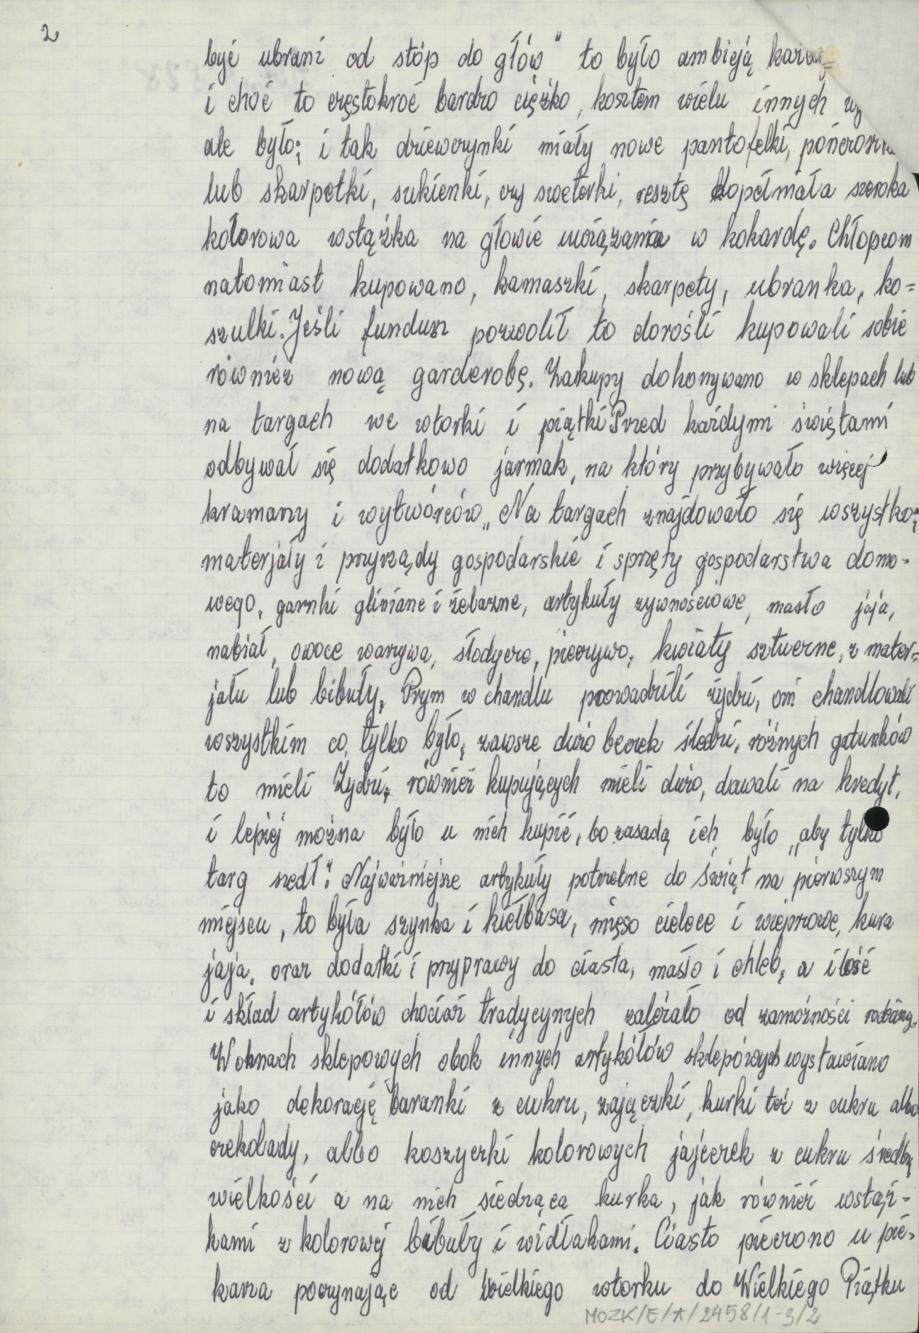 2
być ubrani od stóp do głów" to było ambicją
i choć to częstokroć bardzo ciężko, kosztem wielu innych
ale było; i tak dziewczynki miały nowe pantofelki,
lub skarpetki, sukienki, czy sweterki, resztę dopełniała szeroka
kolorowa wstążka na głowie uwiązana w kokardę. Chłopcom
natomiast kupowano, kamaszki, skarpety, ubranka, ko=
szulki. Jeśli fundusz pozwolił to dorośli kupowali sobie
również nową garderobę. Zakupy dokonywano w sklepach lub
na targach we wtorki i piątki Przed każdymi świętami
odbywał się dodatkowo jarmak, na który przybywało więcej
kramarzy i wytwórców. Na targach znajdowało się wszystko;
materjały i przyrządy gospodarskie i sprzęty gospodarstwa domo-
wego, garnki gliniane i żelazne, artykuły żywnościowe, masło jaja,
nabiał, owoce warzywa, słodycze, pieczywo, kwiaty sztuczne, z mater=
jału lub bibuły. Prym w chandlu prowadzili żydzi, oni chandlowali
wszystkim co tylko było, zawsze dużo beczek śledzi, różnych gatunków
to mieli Żydzi, również kupujących mieli dużo, dawali na kredyt,
i lepiej można było u nich kupić, bo zasadą ich było „aby tylko
targ szedł". Najważniejsze artykuły potrzebne do świąt na pierwszym
miejscu, to była szynka i kiełbasa, mięso cielęce i wieprzowe, kura
jaja, oraz dodatki i przyprawy do ciasta, masło i chleb, a ilość
i skład artykółów chociaż tradycyjnych zależało od zamożności rodziny.
W oknach sklepowych obok innych artykółów sklepowych wystawiano
jako dekorację baranki z cukru, zajączki, kurki też z cukru albo
czekolady, albo koszyczki kolorowych jajeczek z cukru średniej
wielkości a na nich siedząca kurka, jak również wstąż-
kami z kolorowej bibuły i widłakami. Ciasto pieczono u pie-
karza poczynając od Wielkiego wtorku do Wielkiego Piątku
MOZK/E/A/2458/1-3/2